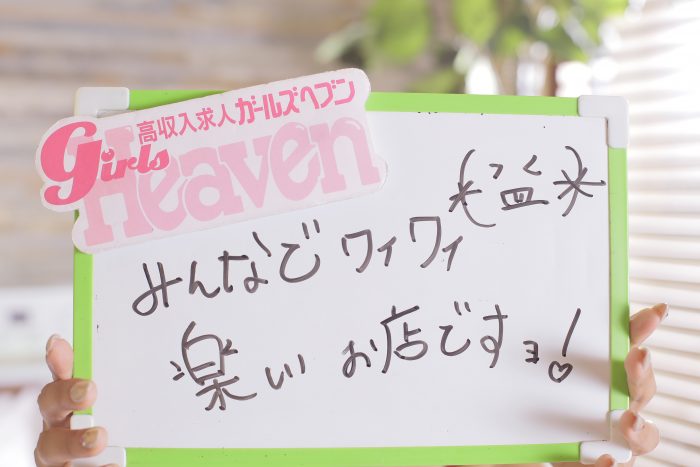 高収入求人ガールズヘブン
Girls Heaven
みんなでワイワイ
楽しいお店ですョ!♡